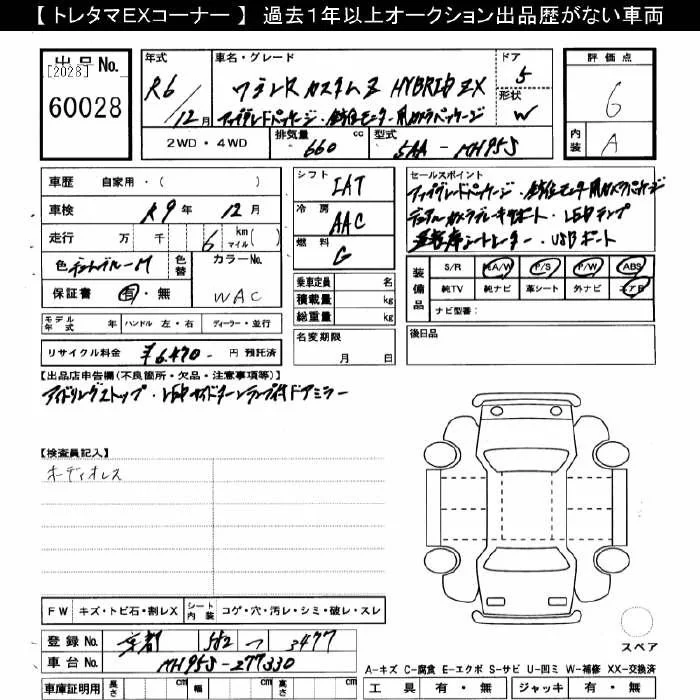 【トレタマEXコーナー】 過去1年以上オークション出品歴がない車両
出品No.
[2028]
60028
年式
R6/12月
車名・グレード
ワゴンR カスタムZ HYBRID ZX
アップグレードパッケージ・全方位モニター用カメラパッケージ
ドア
5
形状
W
評価点
6
内装
A
2WD・4WD
排気量
660 cc
型式
5AA-MH95S
車歴 自家用・( )
車検 R9年 12月
走行 万 千 6 km マイル( )
色 色替 カラーNo.
WAC
保証書 有・無
モデル年式 年 ハンドル 左・右 ディーラー・並行
リサイクル料金 ¥6,470- 円 預託済
シフト IAT
冷房 AAC
燃料 G
乗車定員 名
積載量 kg
総重量 kg
名変期限
月 日
セールスポイント
アップグレードパッケージ・全方位モニター用カメラパッケージ
デュアルカメラブレーキサポート・LEDランプ
運転席シートヒーター・USBポート
装備品
S/R A/W P/S P/W ABS
純TV 純ナビ 革シート 外ナビ エアB
ナビ型番:
後日品
【出品店申告欄(不良箇所・欠品・注意事項等)】
アイドリングストップ・LEDサイドターンランプ付ドアミラー
【検査員記入】
ボディオレス
FW キズ・トビ石・割レX シート内装 コゲ・穴・汚レ・シミ・破レ・スレ
登録No. 京都 582 つ 3477
車台No. MH95S-277330
車庫証明用 長さ cm 幅 cm 高さ cm
スペア
A-キズ C-腐食 E-エクボ S-サビ U-凹ミ W-補修 XX-交換済
工具 有・無 ジャッキ 有・無